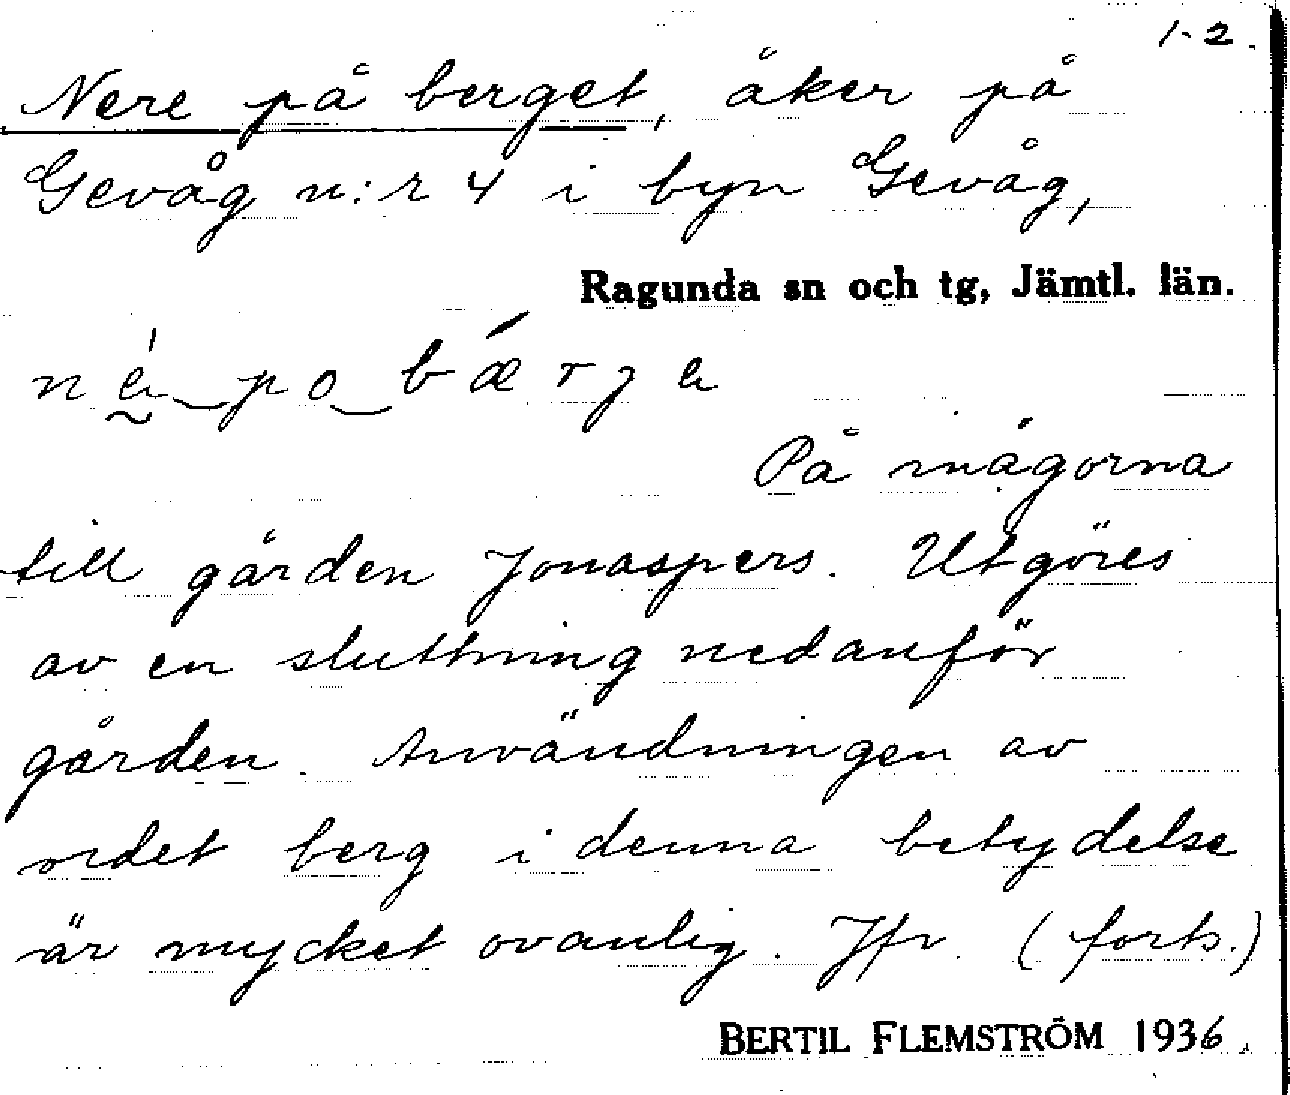 1-2.
Nere på berget, åker på
Gevåg n:r 4 i byn Gevåg,
Ragunda sn och tg, Jämtl. län.
På inägorna
till gården Jonaspers. Utgöres
av en sluttning nedanför
gården. Användningen av
ordet berg i denna betydelse
är mycket ovanlig. Jfr. (forts.)
BERTIL FLEMSTRÖM 1936.